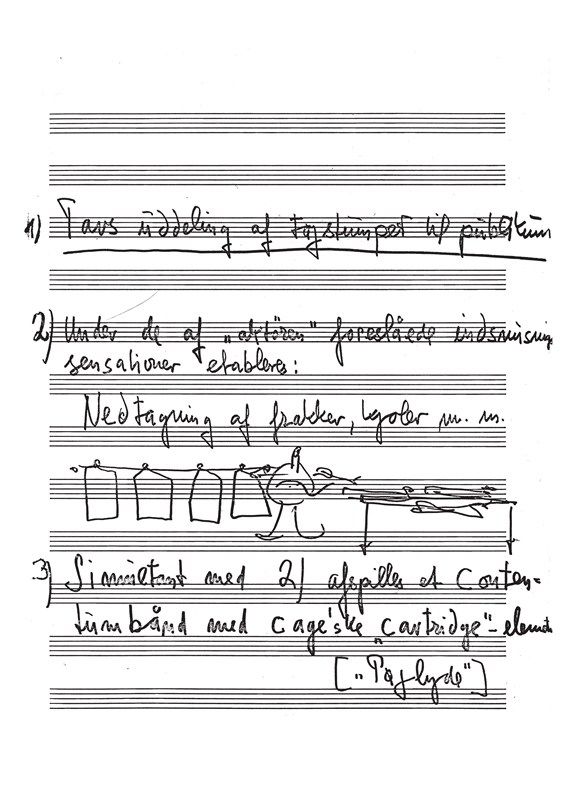 1) Tavs uddeling af tøjstumper til publikum
2) Under de af „aktören" foreslåede
sensationer etableres:
Nedtagning af frakker, kjoler m. m.
3) Simultant med 2) afspilles et Conten-
tumbånd med Cage'ske „Cartridge"-
[„Tøjlyde"]